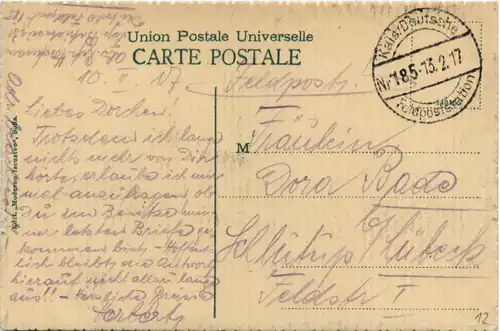 Union Postale Universelle
CARTE POSTALE
10. II. 17
Feldpost.
Kais. Deutsche
Nr. 185 - 13.2.17
Feldpoststation
Liebes Dorchen!
Trotzdem ich lange
nichts mehr von Dir
hörte, erlaube ich mir
mal anzufragen ob
Du im Besitze mei-
ner letzten Briefe ge-
kommen bist. - Hoffent-
lich bleibt die Antwort
hierauf nicht allzu lange
aus!! - Herzliche Grüsse
Herbert
M
Fräulein
Dora Bade
b/
Schlutup Lübeck
Feldstr 1
12